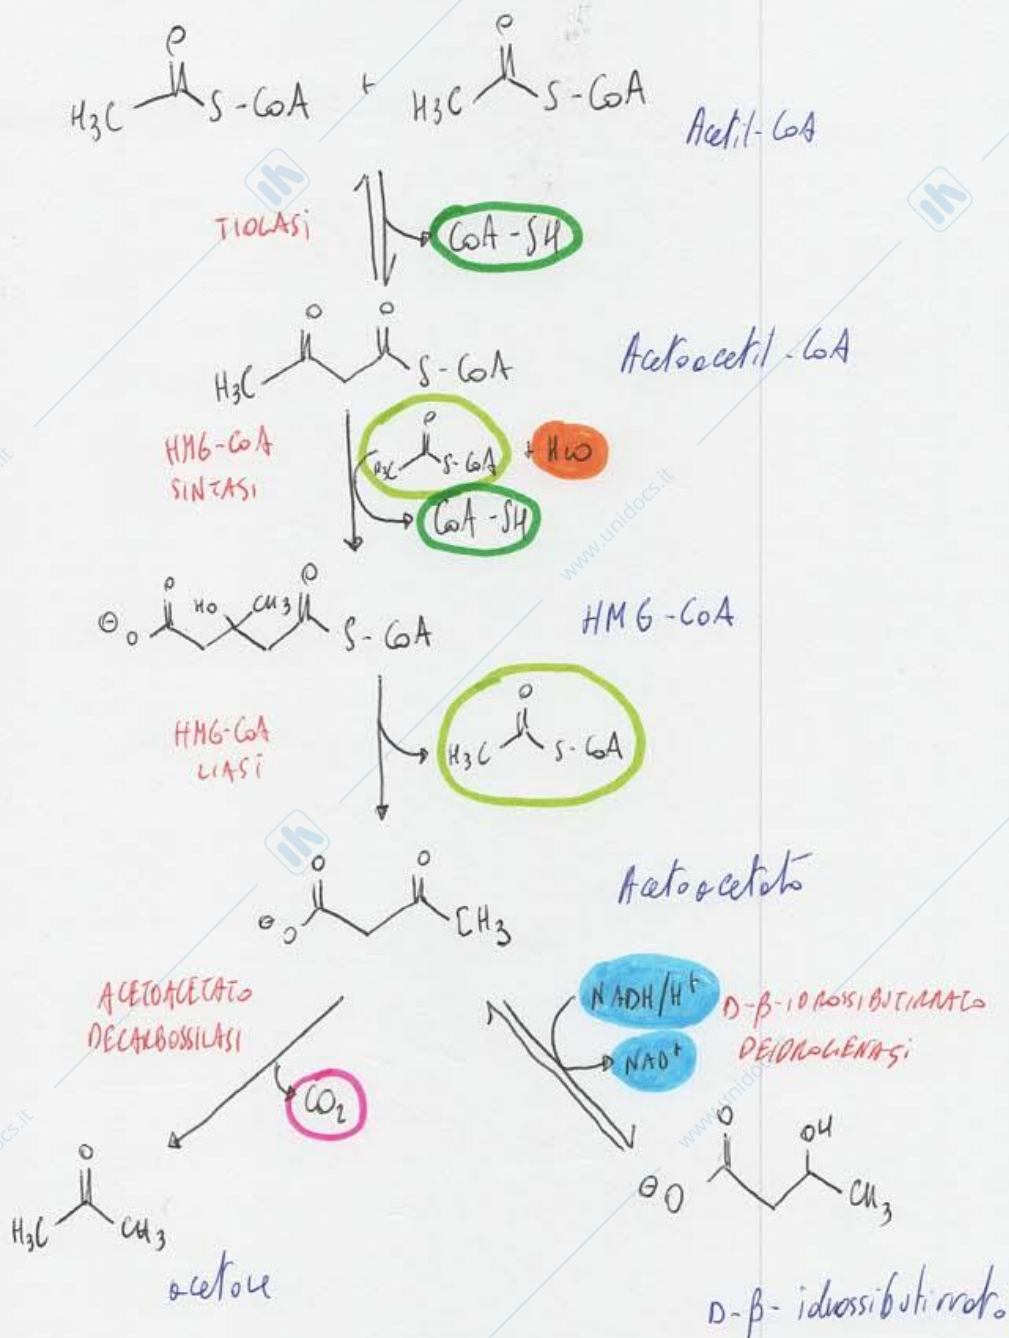 O O
H3C S-CoA + H3C S-CoA
Acetil-CoA
TIOLASI
CoA-SH
O O
H3C S-CoA
Acetoacetil-CoA
HMG-CoA
SINTASI
O
H3C S-CoA + H2O
CoA-SH
O HO CH3 O
⊖O S-CoA
HMG-CoA
HMG-CoA
LIASI
O
H3C S-CoA
O O
⊖O CH3
Acetoacetato
ACETOACETATO
DECARBOSSILASI
CO2
NADH/H+
NAD+
D-β-IDROSSIBUTIRRATO
DEIDROGENASI
O
H3C CH3
acetone
O OH
⊖O CH3
D-β-idrossibutirrato
www.unidocs.it
www.unidocs.it